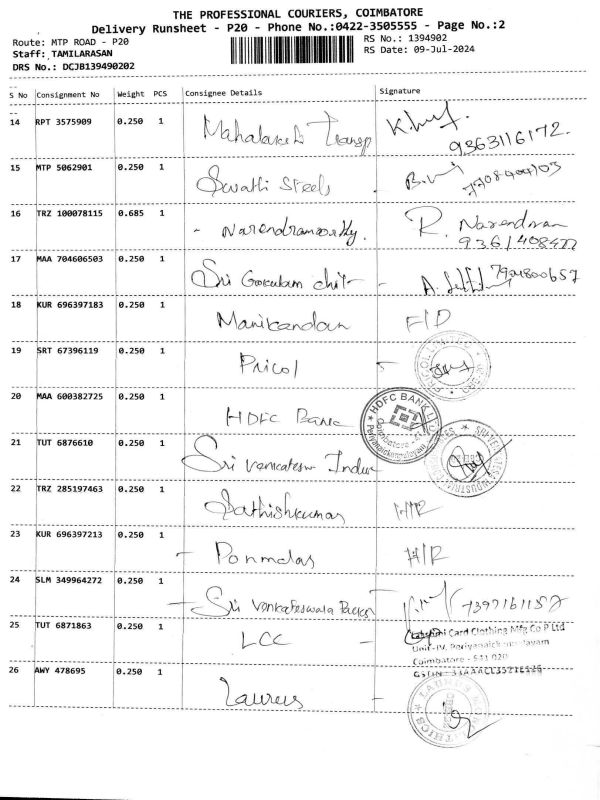 THE PROFESSIONAL COURIERS, COIMBATORE
Delivery Runsheet - P20 - Phone No.:0422-3505555 - Page No.:2
Route: MTP ROAD - P20
RS No.: 1394902
Staff: TAMILARASAN
RS Date: 09-Jul-2024
DRS No.: DCJB139490202
S No Consignment No Weight PCS Consignee Details Signature
14 RPT 3575909 0.250 1 Mahalakshmi Transp
9363116172.
15 MTP 5062901 0.250 1 Swathi Steels -
16 TRZ 100078115 0.685 1 - R. Narendran
17 MAA 704606503 0.250 1 Sri Gokulam chit -
18 KUR 696397183 0.250 1 Manikandan F/D
19 SRT 67396119 0.250 1 Pricol
20 MAA 600382725 0.250 1 HDFC Bank
HDFC BANK LTD
21 TUT 6876610 0.250 1 Sri Venkateswa Indus
22 TRZ 285197463 0.250 1 Sathishkumar H/R
23 KUR 696397213 0.250 1 - Ponmdas H/R
24 SLM 349964272 0.250 1 - Sri Venkateswara 7397161152
25 TUT 6871863 0.250 1 LCC -
Lakshmi Card Clothing Mfg Co P Ltd
Unit-IV, Periyanaickenpalayam
Coimbatore - 641 020
26 AWY 478695 0.250 1 Laureus -